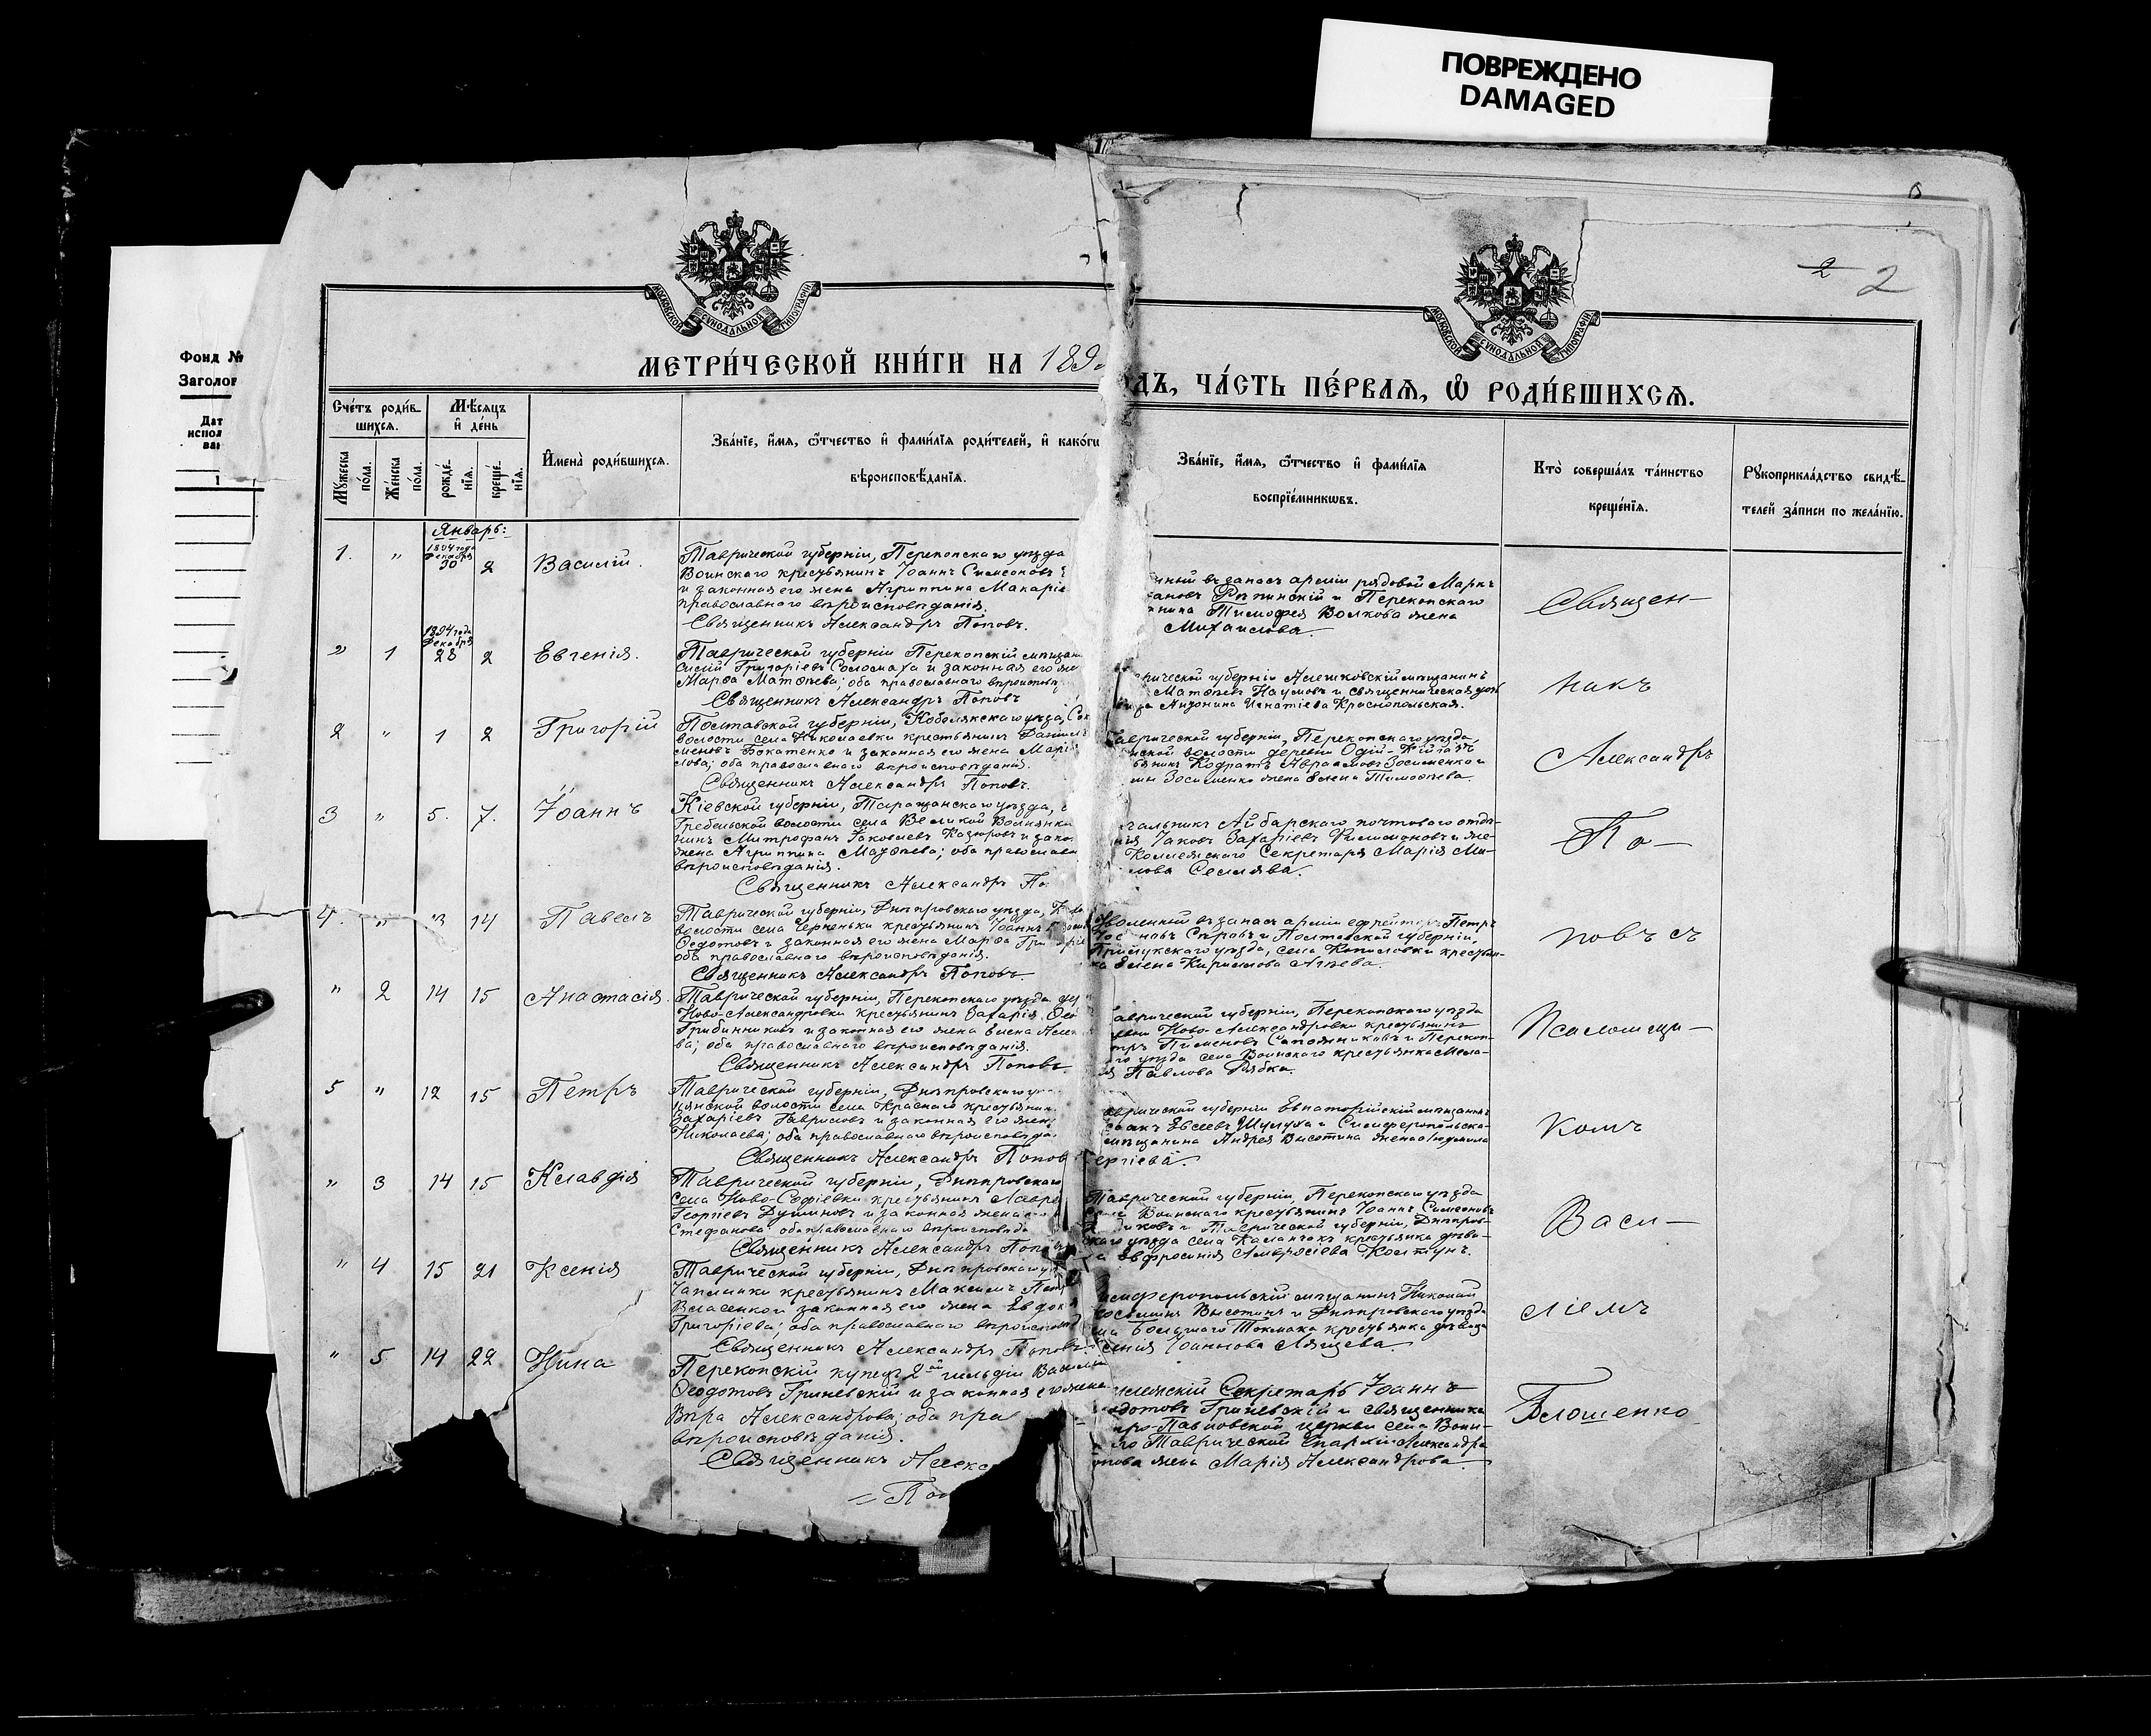 ПОВРЕЖДЕНО
DAMAGED
2 2
Фонд №
Заголов
Дат
испол
ва
1
МОСКОВСКОЙ СѴНОДАЛЬНОЙ ТИПОГРАФІИ
МОСКОВСКОЙ СѴНОДАЛЬНОЙ ТИПОГРАФІИ
МЕТРИ́ЧЕСКОЙ КНИ́ГИ НА 189
ДЪ, ЧА́СТЬ ПЕ́РВАѦ, Ѡ РОДИ́ВШИХСѦ.
Сче́тъ роди́в-
шихсѧ.
Мѣ́сѧцъ
и́ де́нь
Мꙋ́жеска
по́ла.
Же́нска
по́ла.
рожде́-
нїѧ.
креще́-
нїѧ.
И҆мена̀ роди́вшихсѧ.
Зва́нїе, и҆́мѧ, ѻ҆́тчество и҆ фами́лїѧ роди́телей, и҆ како́гѡ
вѣроисповѣ́данїѧ.
Зва́нїе, и҆́мѧ, ѻ҆́тчество и҆ фами́лїѧ
воспрїе́мникѡвъ.
Кто̀ соверша́лъ та́инство
креще́нїѧ.
Рꙋкоприкла́дство свидѣ́-
телей за́писи по жела́нїю.
Январь:
1. " 1894 года Декабря 30 2 Василій.
Таврической губерніи, Перекопскаго уѣзда
Воинскаго крестьянинъ Іоаннъ Симеоновъ
и законная его жена Агриппина Макарі
православнаго вѣроисповѣданія.
Священникъ Александръ Поповъ.
ный въ запасъ арміи рядовой Маркъ
ановъ Рѣпинскій и Перекопскаго
нина Тимофея Волкова жена
Михайлова.
Священ-
" 1 1894 года Декабря 28 2 Евгенія.
Таврической губерніи Перекопскій мѣщан
силій Григоріевъ Соломаха и законная его же
Марѳа Матѳѣева; оба православнаго вѣроисповѣ
Священникъ Александръ Поповъ
рической губерніи Алешковскій мѣщанинъ
Матѳей Наумовъ и священническая дочь
Антонина Игнатіева Краснопольская.
никъ
2 " 1 2 Григорій
Полтавской губерніи, Кобелякскаго уѣзда, Со
волости села Николаевки крестьянинъ Даніилъ
меновъ Бокатенко и законная его жена Марі
лова; оба православнаго вѣроисповѣданія.
Священникъ Александръ Поповъ.
Таврической губерніи, Перекопскаго уѣзда,
нской волости деревни
ьянинъ Кодратъ Авраамовъ Зосименко и
Зосименко жена Елена Тимоѳеева
Александръ
3 " 5. 7. Іоаннъ
Кіевской губерніи, Таращанскаго уѣзда,
Гребельской волости села Великой Вовнянки
нинъ Митрофанъ Іаковлевъ и закон
жена Агриппина Матѳѣева; оба православна
вѣроисповѣданія.
Священникъ Александръ По
чальникъ Айбарскаго почтоваго отдѣ-
нія Іаковъ Захаріевъ Филимоновъ и же-
Коллежскаго Секретаря Марія Ми-
лова
По-
4. " 13 14 Павелъ
Таврической губерніи, Днѣпровскаго уѣзда,
волости села Черненьки крестьянинъ Іоаннъ
Ѳедотовъ и законная его жена Марѳа Григоріе
оба православнаго вѣроисповѣданія.
Священникъ Александръ Поповъ
Уволенный въ запасъ арміи ефрейторъ Петръ
и Полтавской губерніи,
Прилукскаго уѣзда, села крестьян-
ка Елена Кириллова
повъ съ
" 2 14 15 Анастасія.
Таврической губерніи, Перекопскаго уѣзда дер
Ново-Александровки крестьянинъ Захарія Ѳео
Грибинниковъ и законная его жена Елена Алек
ва; оба православнаго вѣроисповѣданія.
Священникъ Александръ Поповъ
Таврической губерніи, Перекопскаго уѣзда
вни Ново-Александровки крестьянинъ
тръ Пименовъ Сапожниковъ и Перекоп-
го уѣзда села Воинскаго крестьянка Мела-
ія Павлова Рябка.
Псаломщи-
5 " 12 15 Петръ
Таврической губерніи, Днѣпровскаго уѣз
волости села Краснаго крестьянин
Захаріевъ Гавриловъ и законная его жена
Николаева; оба православнаго вѣроисповѣда
Священникъ Александръ Попов
Таврической губерніи Евпаторійскій мѣщанинъ
Евсеевъ Шулуха и Симферопольска-
мѣщанина Андрея Висотина жена Людмила
ергіева.
комъ
" 3 14 15 Клавдія
Таврической губерніи, Днѣпровскаго
села Ново-Софіевки крестьянинъ Лавре
Георгіевъ и законная жена
Стефанова оба православнаго вѣроисповѣда
Священникъ Александръ Поповъ
Таврической губерніи, Перекопскаго уѣзда
села Воинскаго крестьянинъ Іоаннъ Симеоновъ
иковъ и Таврической губерніи, Днѣпров-
скаго уѣзда села Каланчакъ крестьянка дѣви-
ца Евфросинія Амвросіева Колтунъ.
Васи-
" 4 15 21 Ксенія
Таврической губерніи, Днѣпровскаго уѣ
Чаплинки крестьянинъ Максимъ Пет
Власенко и законная его жена Евдокі
Григоріева; оба православнаго вѣроисповѣ
Священникъ Александръ Поповъ
Симферопольскій мѣщанинъ Николай
Висотинъ и Днѣпровскаго уѣзда
Большаго Токмака крестьянка дѣвица
сенія Іоаннова Лящева
ліемъ
" 5 14 22 Нина
Перекопскій купецъ 2ой гильдіи Василій
Ѳеодотовъ Гриневскій и законная его жена
Вѣра Александрова; оба пра
вѣроисповѣданія.
Священникъ Алекс
Поп
ллежскій Секретарь Іоаннъ
еодотовъ Гриневскій и священника
тро-Павловской церкви села Воин-
го Таврической Епархіи Александра
опова жена Марія Александрова.
Блошенко